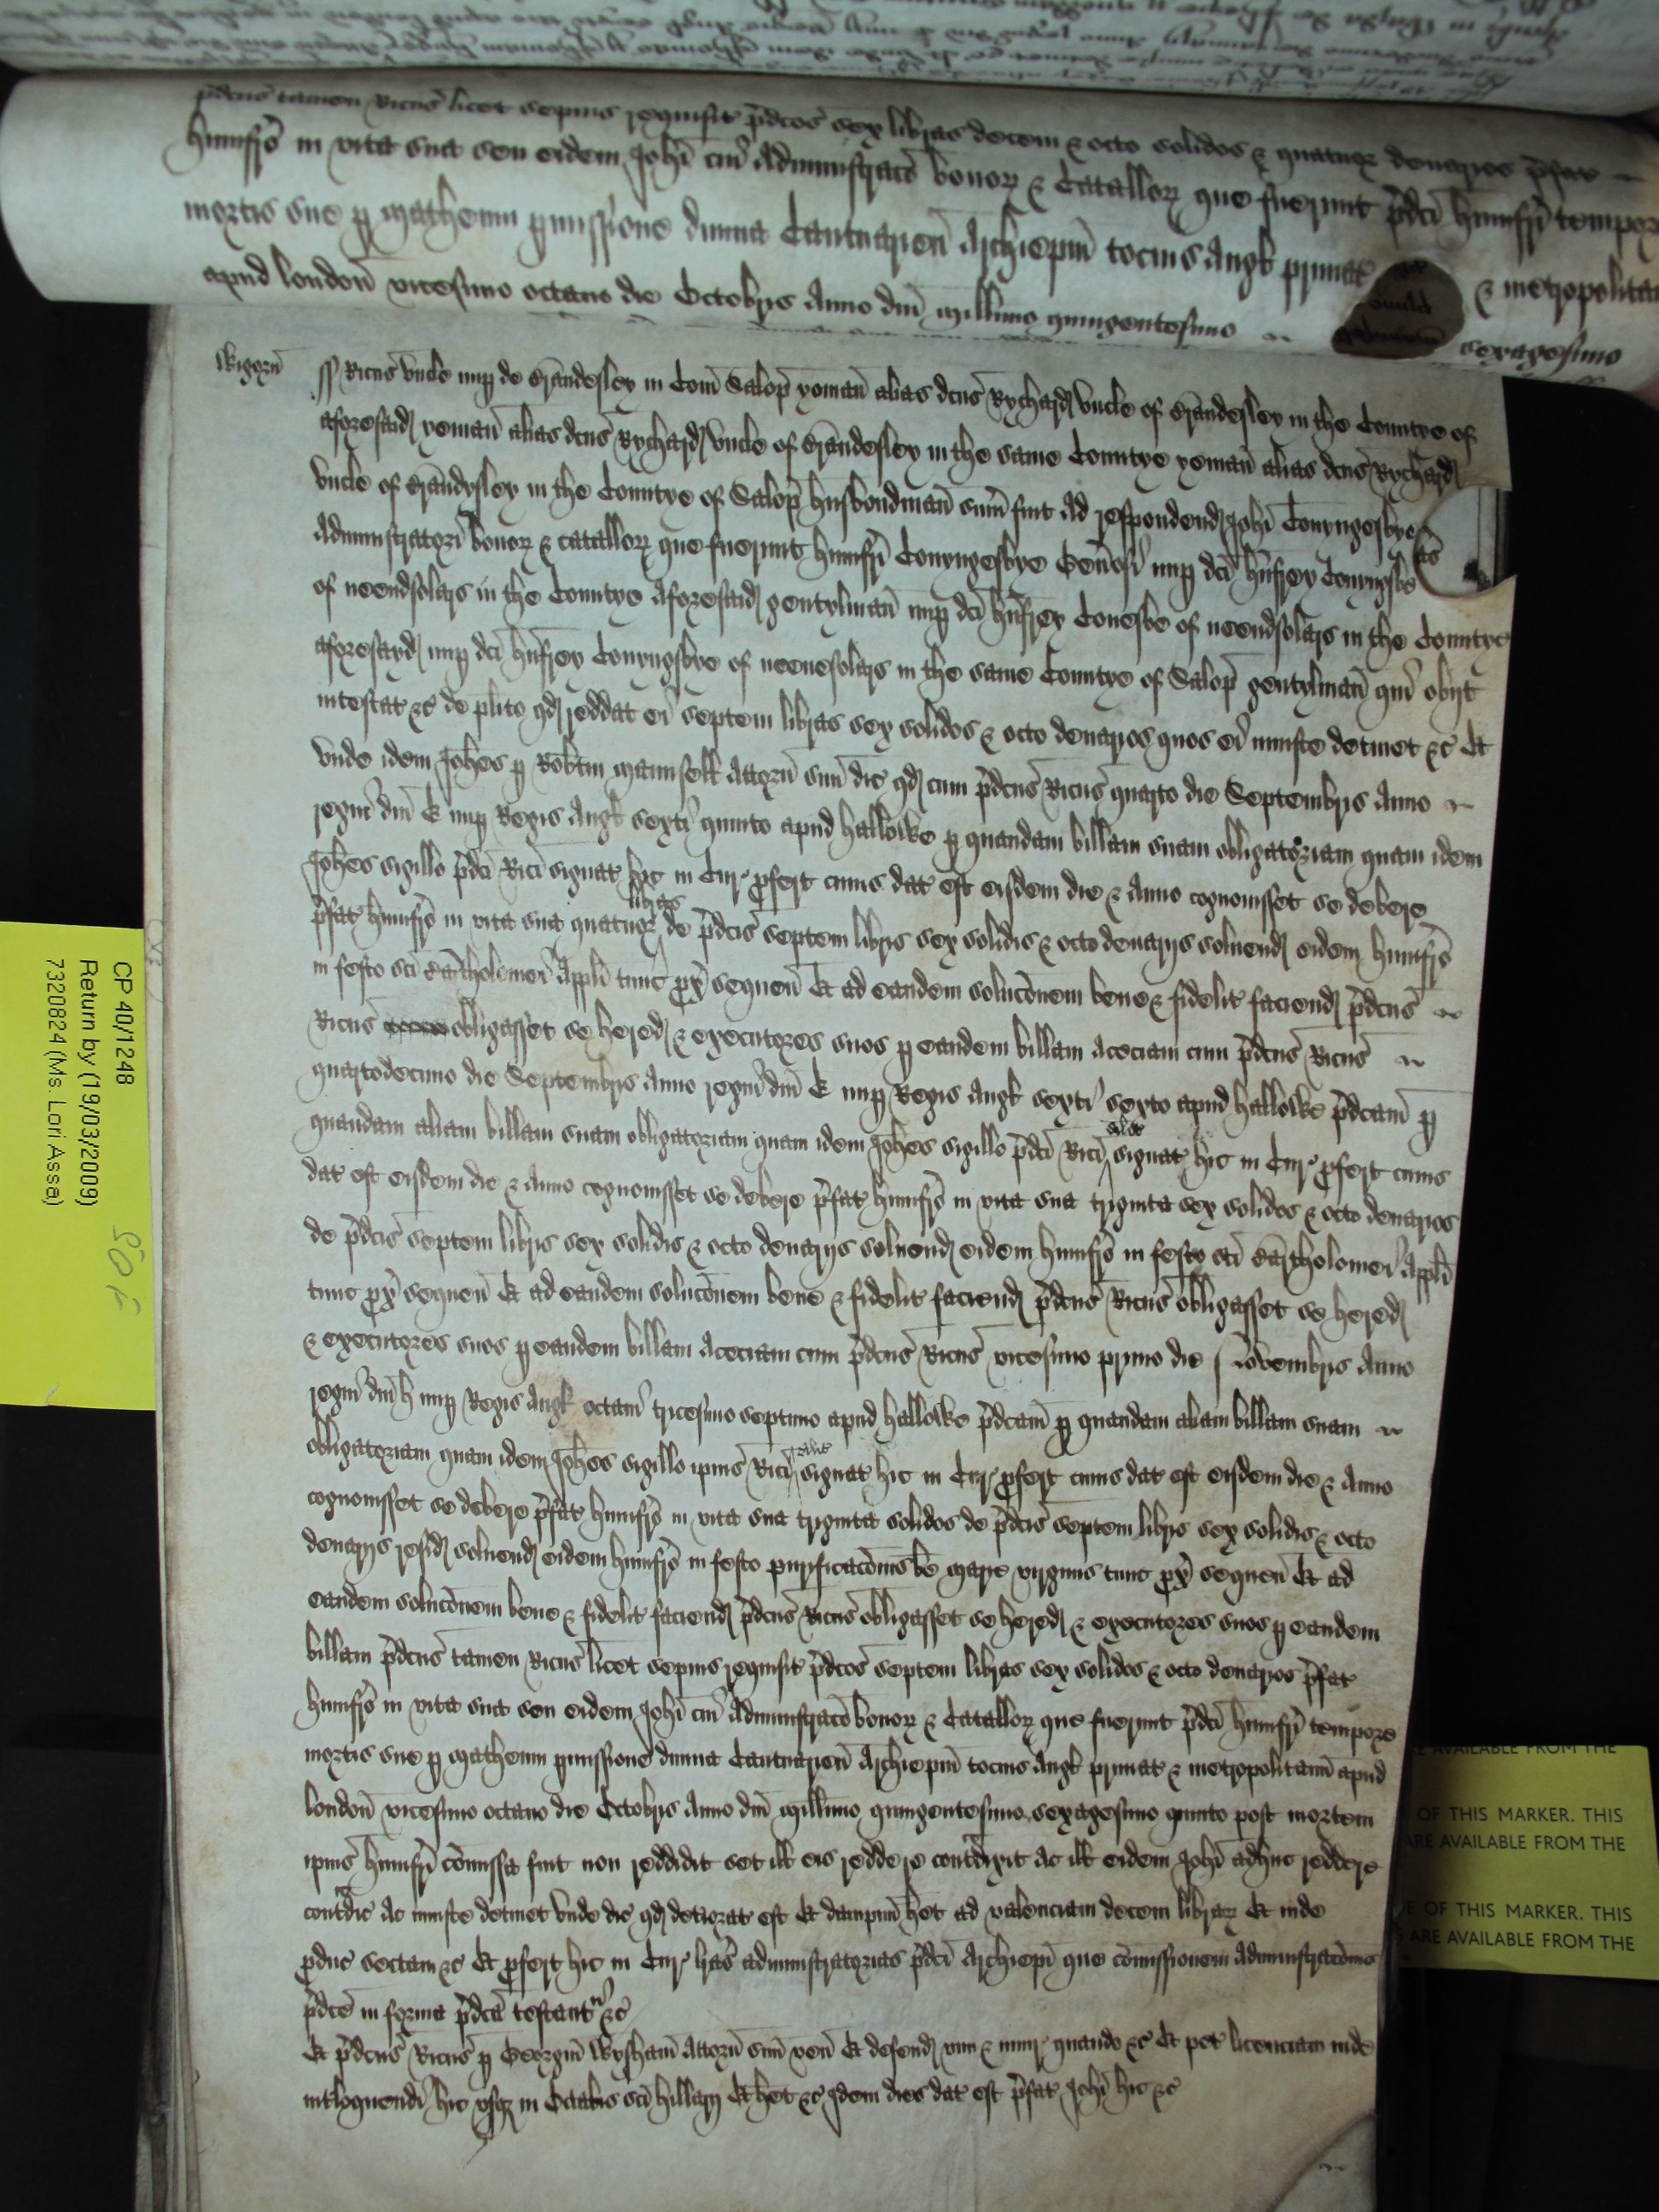 p̄dcus tamen Ricus licet sepius requisit p̄dcos sex libras decem & octo solidos & quatuor denarios p̄fat
humfro in vita sua seu eidem Johi cui Administraco bonor & Catallor que fuerunt p̄dci humfri tempore
mortis sue p matheum pmissione divina Cantuarien Archiepm tocius Angl primat & metropolitan
apud london vicesimo octavo die Octobris Anno dni millimo quingentesimo sexagesimo
Wigorn ss Ricus Uncle nup de Erandesley in Com Salop yoman alias dcus Rychard Uncle of Erandesley in the Countye of
aforesaid yeman alias dcus Rychard Uncle of Erandesley in the same Countye yeman alias dcus Rychard
Uncle of Erandysley in the Countye of Salop husbondman sum fuit ad respondend Johi Conyngesbye
Administratori bonor & catallor que fuerunt humfri Conyngesbye Genosi nup dci humfrey Conyngsbe
of neendsolars in the Countye Aforesaid gentylman nup dci humfrey Conesbe of neendsolars in the Countye
aforesayd nup dci humfrey Conyngsbye of neenesolars in the same Countye of Salop gentylman qui obijt
intestat &c de plito qd reddat ei septem libras sex solidos & octo denarios quos ei iniuste detinet &c Et
unde idem Johes p Robtm maunsell Attorn suu dic qd cum p̄dcus Ricus quarto die Septembris Anno
regni dni E nup Regis Angl sexti quinto apud hallowe p quandam billam suam obligatoriam quam idem
Johes sigillo p̄dci Rici signat hic in Cur pfert cuius dat est eisdem die & Anno cognovisset se debere
p̄fat humfro in vita sua quatuor libras de p̄dcis septem libris sex solidis & octo denarijs solvend eidem humfro
in festo sci Bartholomei Appli tunc px sequen Et ad eandem solucōnem bene & fidelit faciend p̄dcus
Ricus obligasset se hered & executores suos p eandem billam Aceciam cum p̄dcus Ricus
quartodecimo die Septembris Anno regni dni E nup Regis Angl sexti sexto apud hallowe p̄dcam p
quandam aliam billam suam obligatoriam quam idem Johes sigillo p̄dci Rici signat hic in Cur pfert cuius
dat est eisdem die & Anno cognovisset se debere p̄fat humfro in vita sua triginta sex solidos & octo denarios
de p̄dcis septem libris sex solidis & octo denarijs solvend eidem humfro in festo sci Bartholomei Appli
tunc px sequen Et ad eandem solucōnem bene & fidelit faciend p̄dcus Ricus obligasset se hered
& executores suos p eandem billam Aceciam cum p̄dcus Ricus vicesimo primo die Novembris Anno
regni dni h nup Regis Angl octavi tricesimo septimo apud hallowe p̄dcam p quandam aliam billam suam
obligatoriam quam idem Johes sigillo ipius Rici similit signat hic in Cur pfert cuius dat est eisdem die & Anno
cognovisset se debere p̄fat humfro in vita sua triginta solidos de p̄dcis septem libris sex solidis & octo
denarijs resid solvend eidem humfro in festo purificacōnis be marie virginis tunc px sequen Et ad
eandem solucōnem bene & fidelit faciend p̄dcus Ricus obligasset se hered & executores suos p eandem
billam p̄dcus tamen Ricus licet sepius requisit p̄dcos septem libras sex solidos & octo denarios p̄fat
humfro in vita sua seu eidem Johi cui Administraco bonor & Catallor que fuerunt p̄dci humfri tempore
mortis sue p matheum pmissione divina Cantuarien Archiepm tocius Angl primat & metropolitan apud
london vicesimo octavo die Octobris Anno dni millimo quingentesimo sexagesimo quinto post mortem
ipius humfri cōmissa fuit non reddidit set ill eis reddere contdixit Ac ill eidem Johi adhuc reddere
contdic Ac iniuste detinet Unde dic qd deteriorat est Et dampnu het ad valenciam decem librar Et inde
pduc sectam &c Et pfert hic in Cur lras administratorias p̄dci Archiepi que cōmissionem Administracōnis
p̄dce in forma p̄dca testant &c
Et p̄dcus Ricus p Georgiu Wysham Attorn suu ven Et defend vim & iniur quando &c Et pet licenciam inde
intloquendi hic usq in Octabis sci hillarij Et het &c Idem dies dat est p̄fat Johi hic &c
CP 40/1248
Return by (19/03/2009)
7320824 (Ms. Lori Asse)
E AVAILABLE FROM THE
OF THIS MARKER. THIS
ARE AVAILABLE FROM THE
E OF THIS MARKER. THIS
ARE AVAILABLE FROM THE